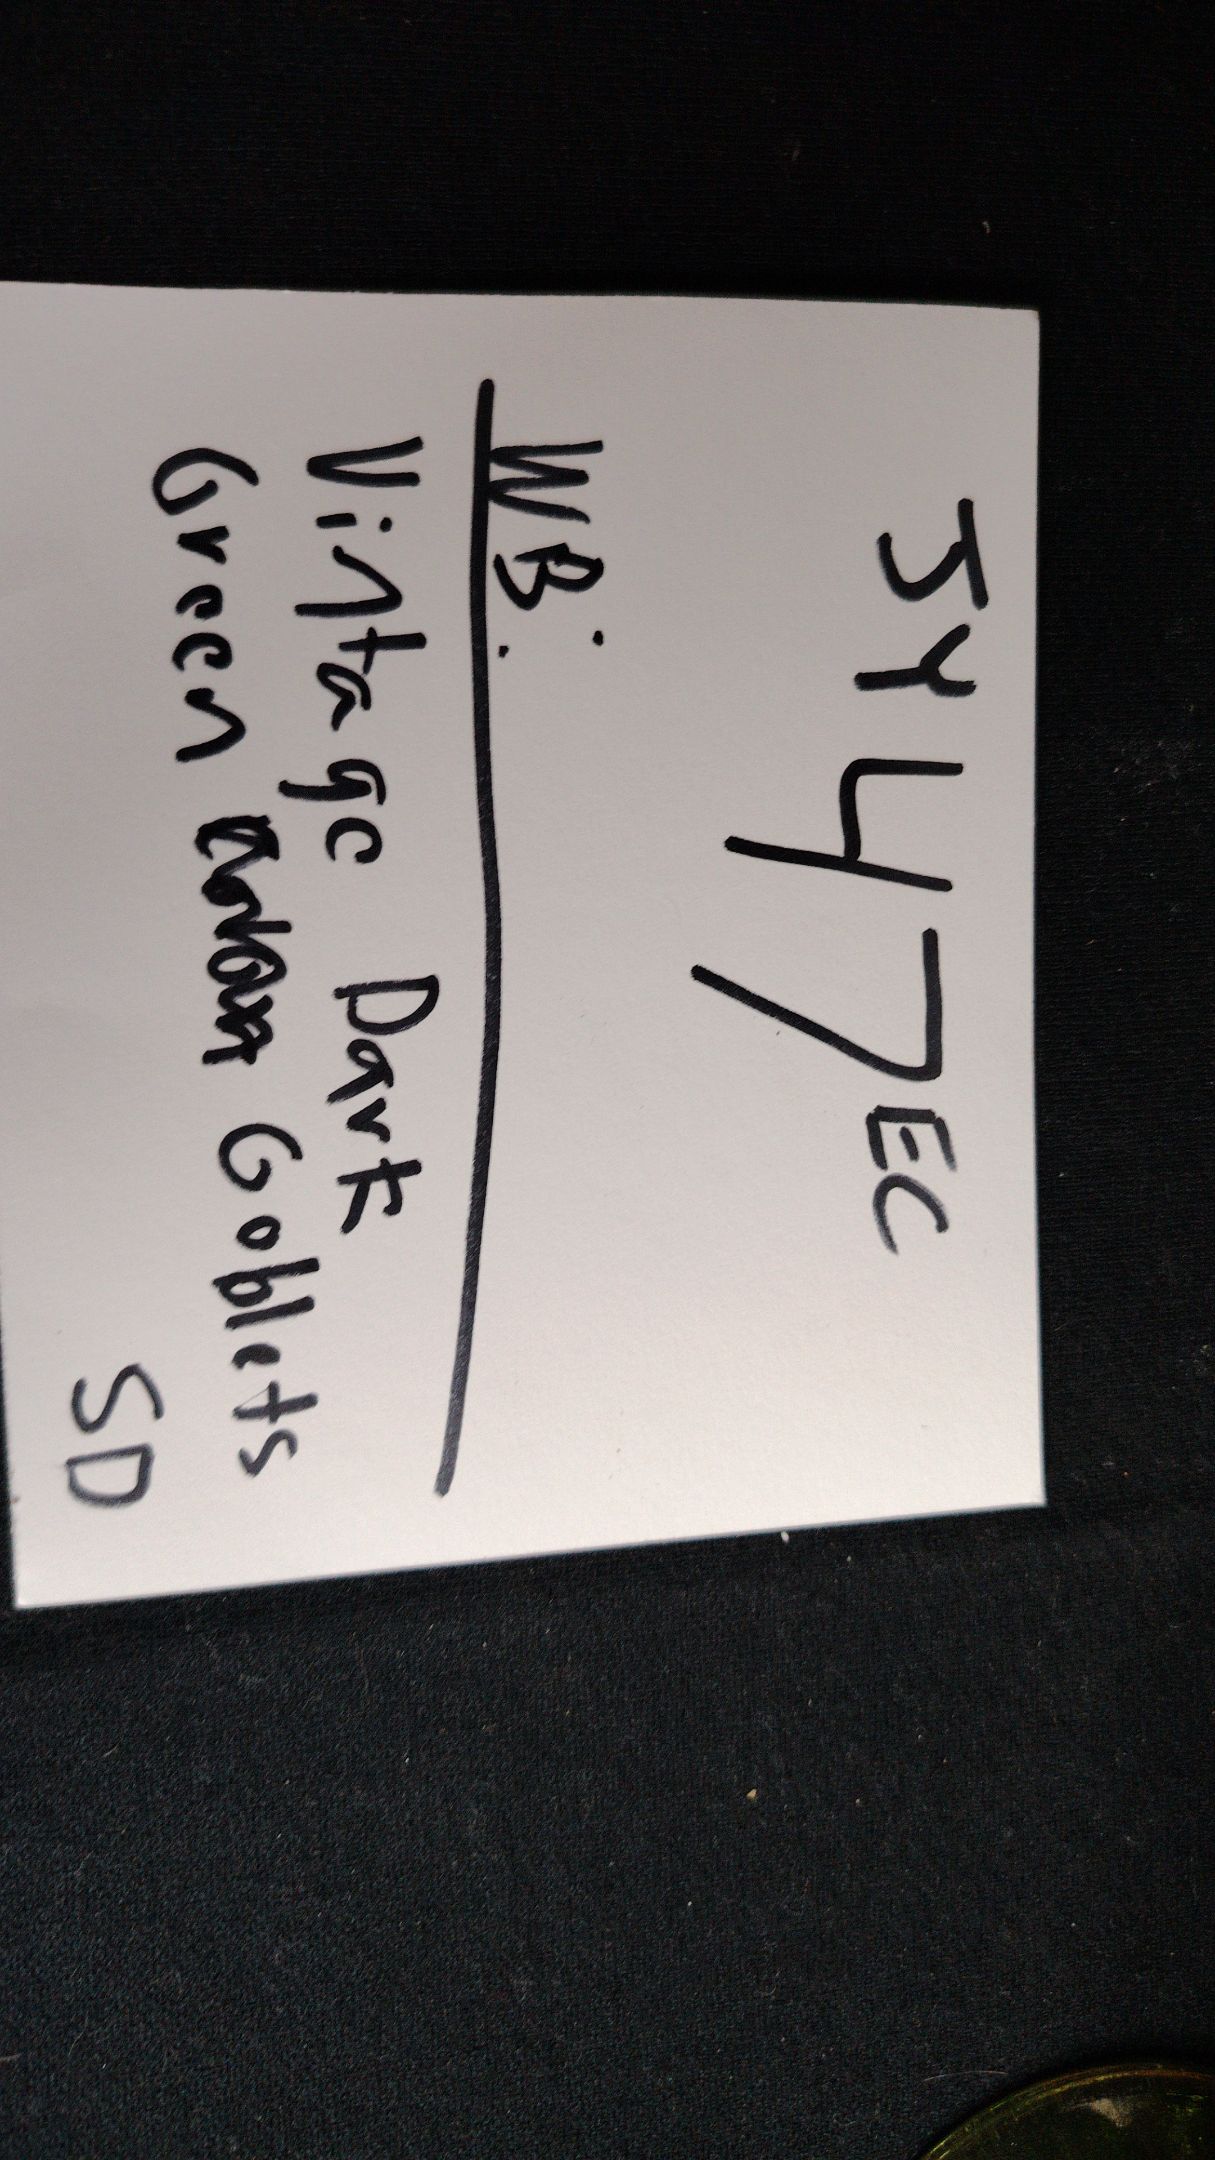 JY47EC
WB:
Vintage Dark
Green Goblets
SD